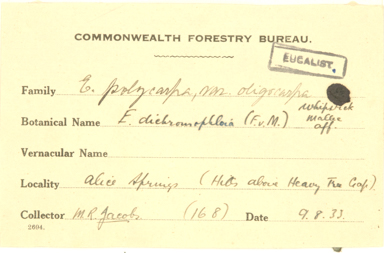 COMMONWEALTH FORESTRY BUREAU.
EUCALIST.
Family E. polycarpa, var. oligocarpa
Botanical Name E. dichromophloia (F.v.M.) whipstick mallee aff.
Vernacular Name
Locality Alice Springs (Hills above Heavy Tree Gap).
Collector M.R. Jacobs (168) Date 9.8.33.
2604.